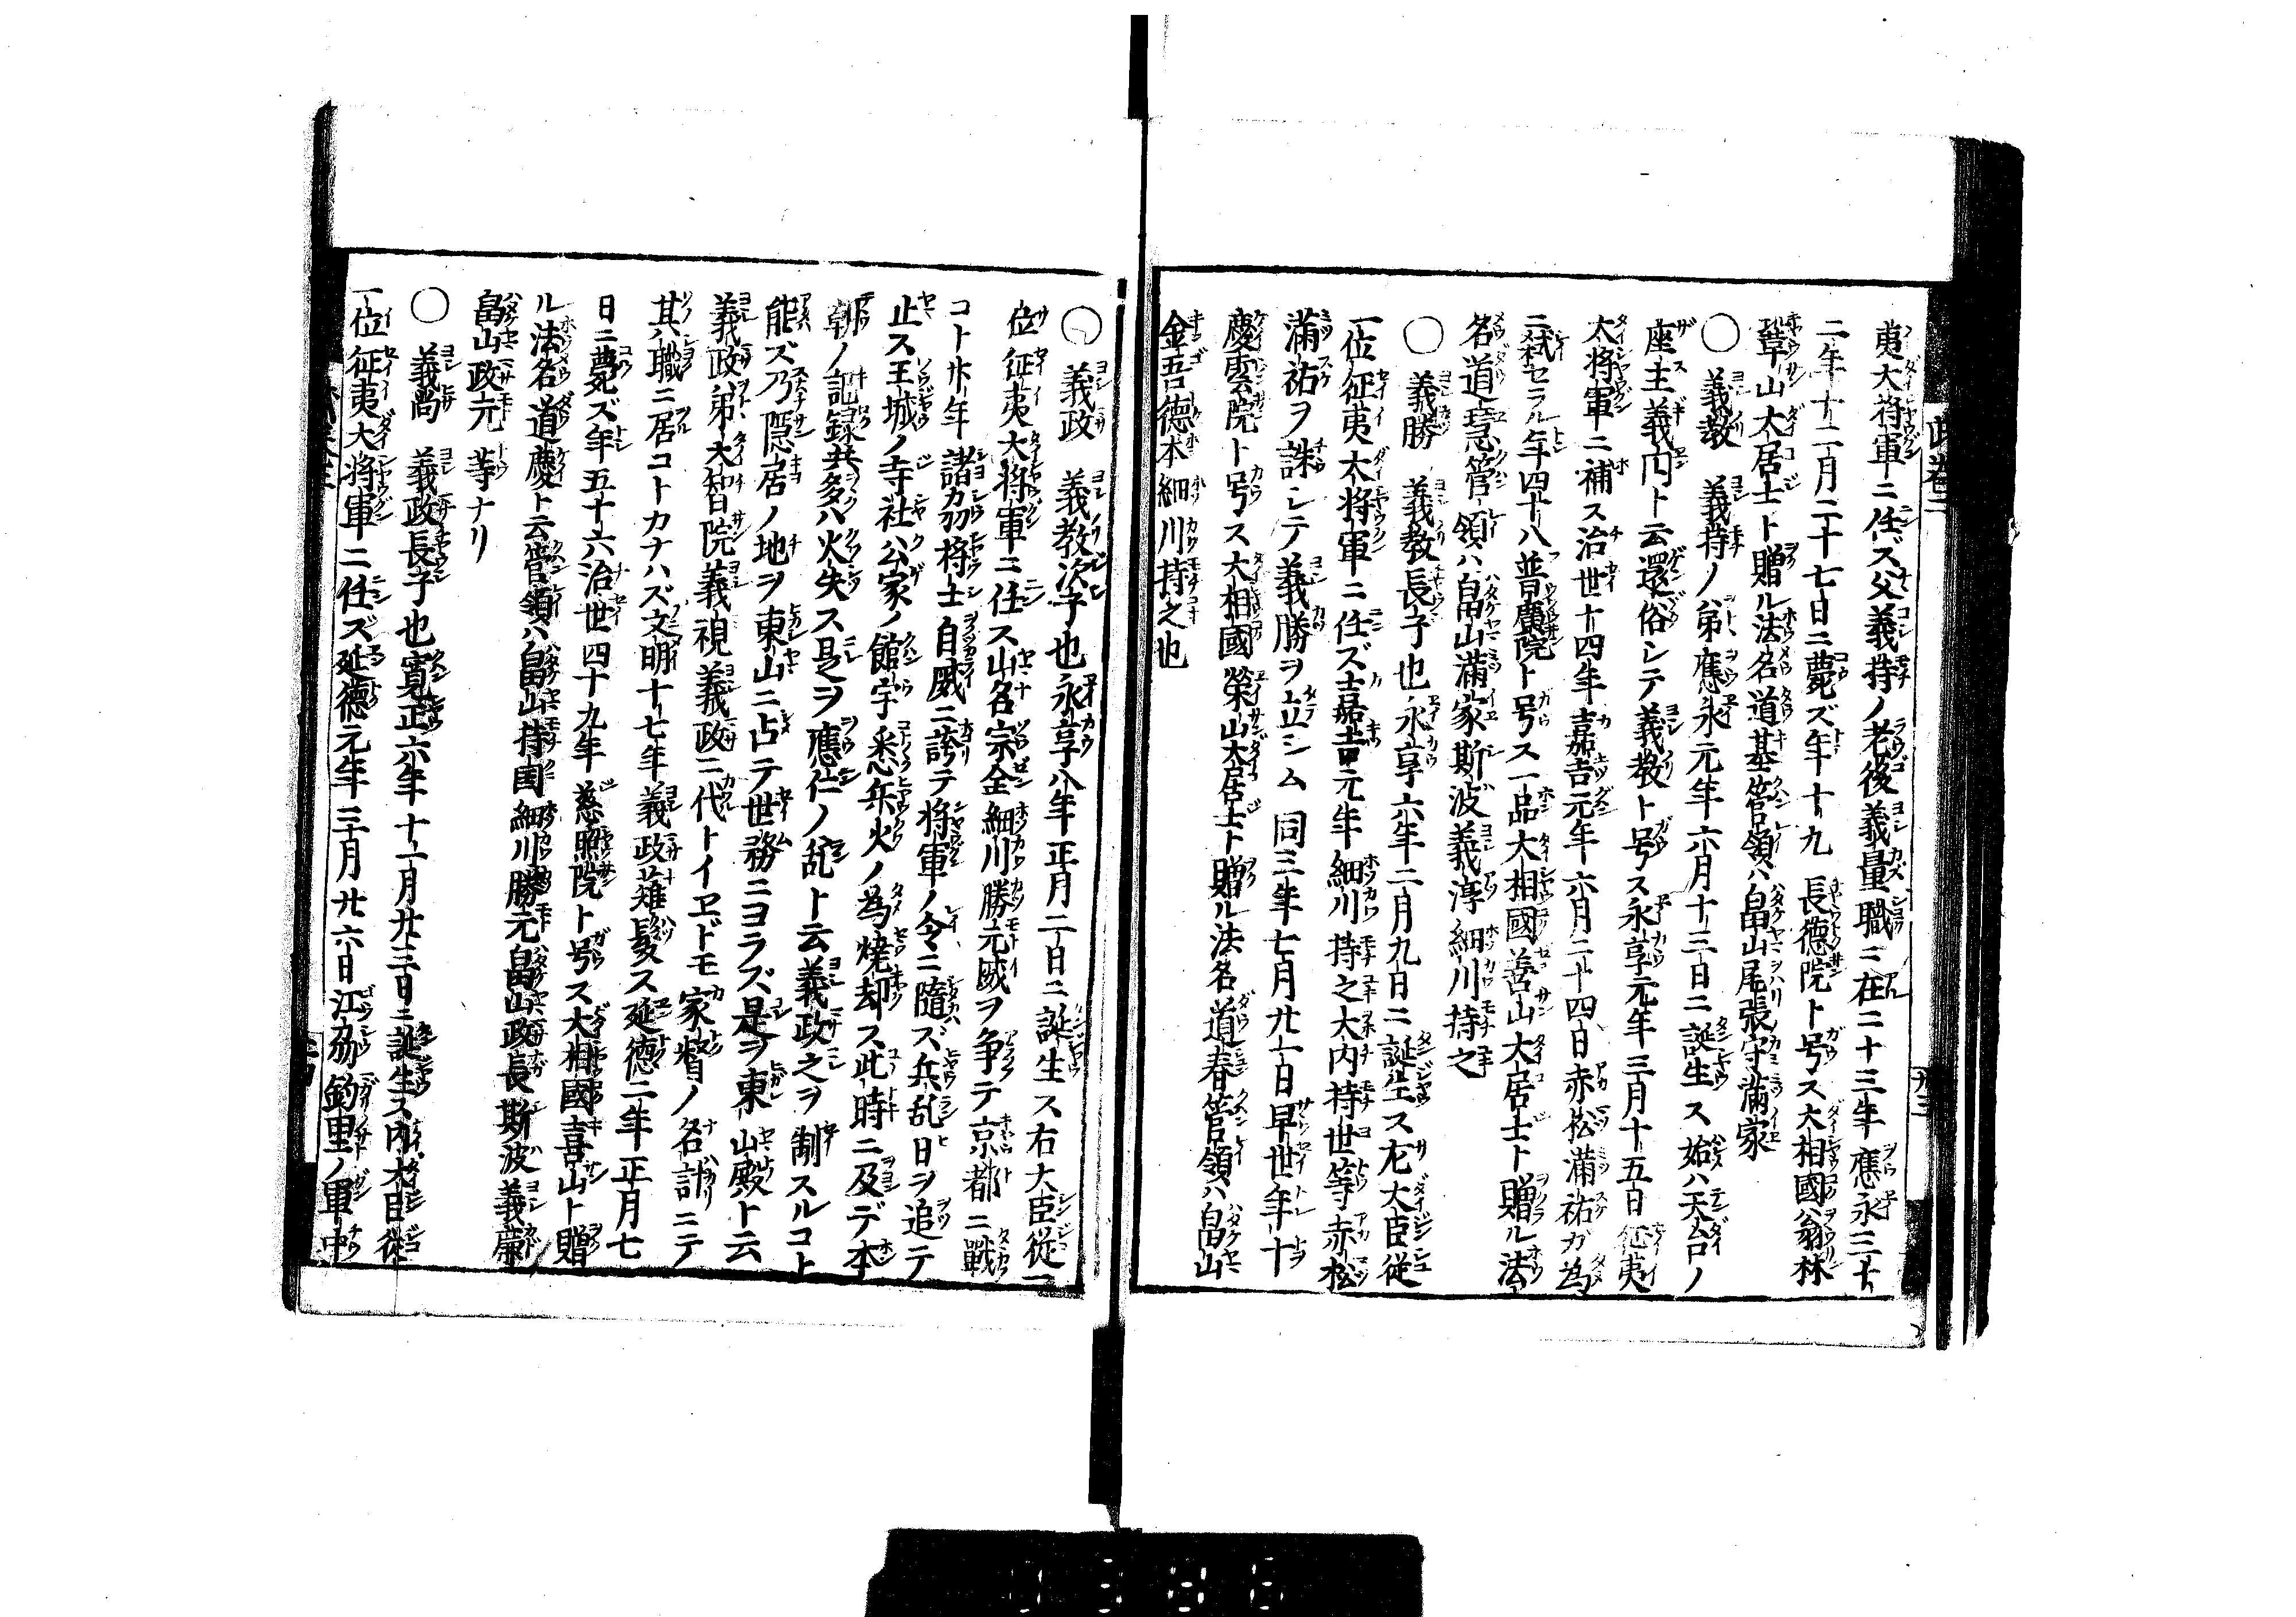 夷大将軍ニ任ズ父義持ノ老後義量職ニ在ニ十三年應永三十
二年十二月二十七日ニ薨ズ年十九 長德院ト号ス大相國翁林
鞏山大居士ト贈ル法名道基管領ハ畠山尾張守満家
○ 義教 義持ノ弟應永元年六月十三日ニ誕生ス始ハ天台ノ
座主義円ト云還俗シテ義教ト号ス永享元年三月十五日征夷
大将軍ニ補ス治世十四年嘉吉元年六月二十四日赤松満祐ガ為
ニ弑セラル年四十八普廣院ト号ス一品大相國善山大居士ト贈ル法
名道惠管領ハ畠山満家斯波義淳細川持之
○ 義勝 義教長子也永享六年二月九日ニ誕生ス左大臣従
一位征夷大将軍ニ任ズ嘉吉元年細川持之大内持世等赤松
満祐ヲ誅シテ義勝ヲ立シム 同三年七月廿一日早世年十
慶雲院ト号ス大相國榮山大居士ト贈ル法名道春管領ハ畠山
金吾德本細川持之也
○ 義政 義教次子也永享八年正月二日ニ誕生ス右大臣従一
位征夷大将軍ニ任ス山名宗全細川勝元威ヲ争テ京都ニ戰
コト廾年諸刕将士自威ニ誇テ将軍ノ令ニ隨ズ兵乱日ヲ追テ
止ス王城ノ寺社公家ノ館宇悉兵火ノ為燒却ス此時ニ及デ本
朝ノ記録共多ハ火失ス是ヲ應仁ノ乱ト云義政之ヲ制スルコト
能ズ乃隱居ノ地ヲ東山ニ占テ世務ニヨラズ是ヲ東山殿ト云
義政弟大智院義視義政ニ代トイヱドモ家督ノ名計ニテ
其職ニ居コトカナハズ文明十七年義政薙髮ス延德二年正月七
日ニ薨ズ年五十六治世四十九年慈照院ト号ス大相國喜山ト贈
ル法名道慶ト云管領ハ畠山持国細川勝元畠山政長斯波義廉
畠山政元等ナリ
○ 義尚 義政長子也寛正六年十一月廿三日ニ誕生ス内大臣従
一位征夷大将軍ニ任ズ延德元年三月廿六日江刕鈎里ノ軍中